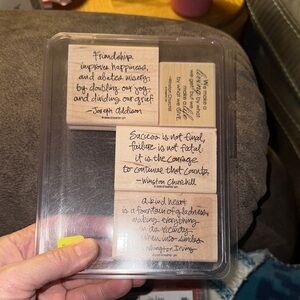 Friendship
improves happiness,
and abates misery,
by doubling our joy,
and dividing our grief
-Joseph Addison
We make a
living by what
we get but we
make a life
by what we give.
-Winston Churchill
Success is not final,
failure is not fatal:
it is the courage
to continue that counts.
-Winston Churchill
A kind heart
is a fountain of gladness,
making everything
in its vicinity
freshen into smiles
Washington Irving